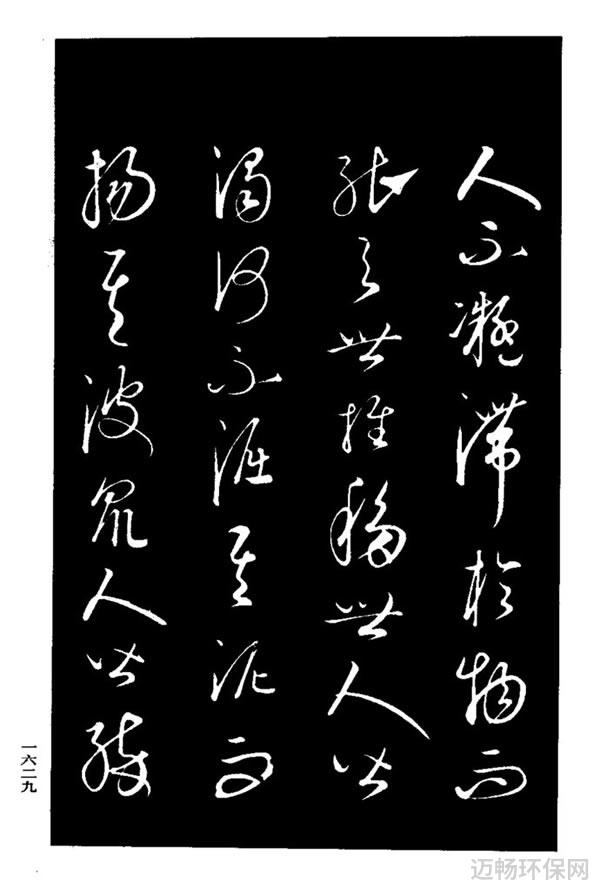 人不凝滯於物而
能与世推移世人皆
濁何不淈其泥而
揚其波衆人皆醉
一六二九
迈畅环保网